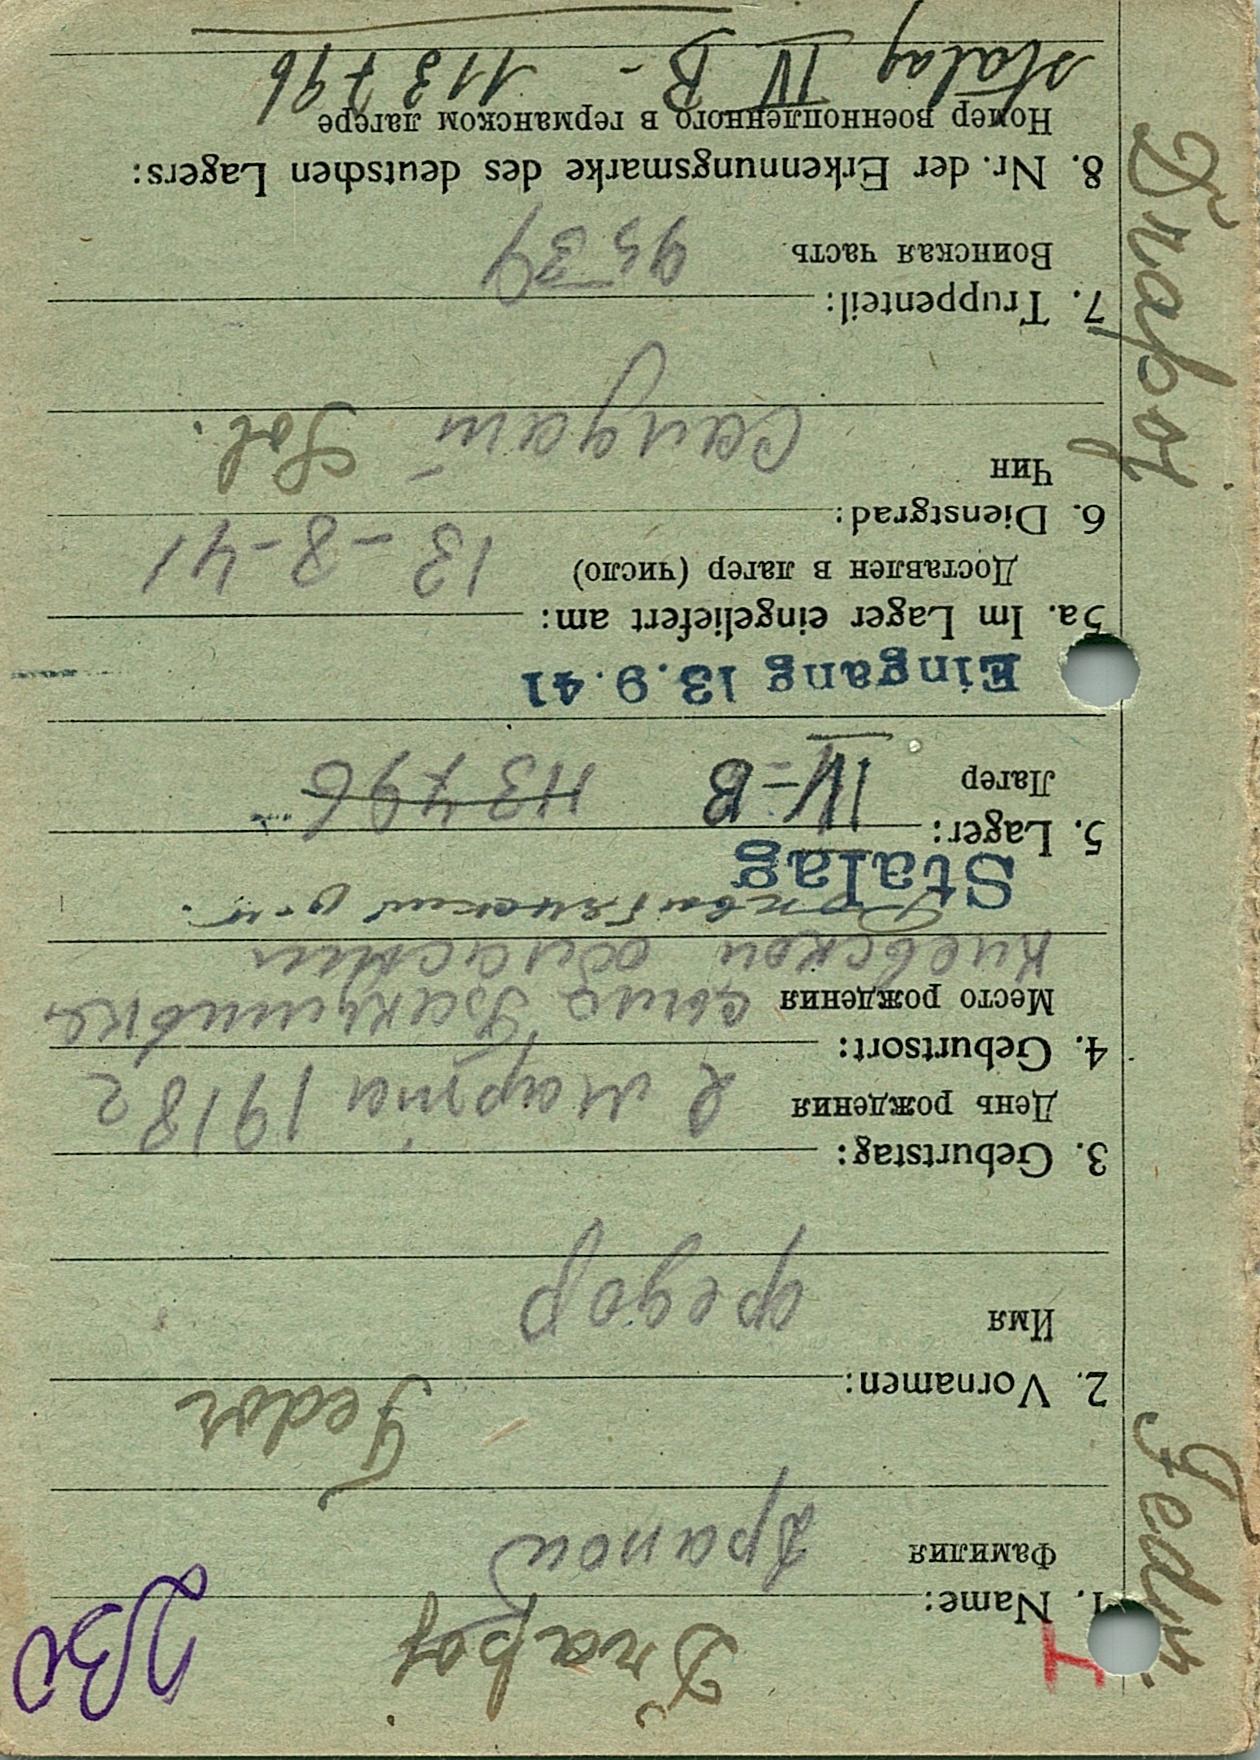 I
1. Name: Drapoj
Фамилия драпой
2. Vornamen: Fedor
Имя федор
3. Geburtstag:
День рождения 2 марта 1918 г
4. Geburtsort:
Место рождения село
Киевской области
Stalag
5. Lager:
Лагер IV-B 113796
Eingang 13.9.41
5a. Im Lager eingeliefert am:
Доставлен в лагер (число) 13-8-41
6. Dienstgrad:
Чин Sol.
7. Truppenteil:
Воинская часть
8. Nr. der Erkennungsmarke des deutschen Lagers:
Номер военнопленного в германском лагере
Stalag IV B - 113796
Drapoj Fedor